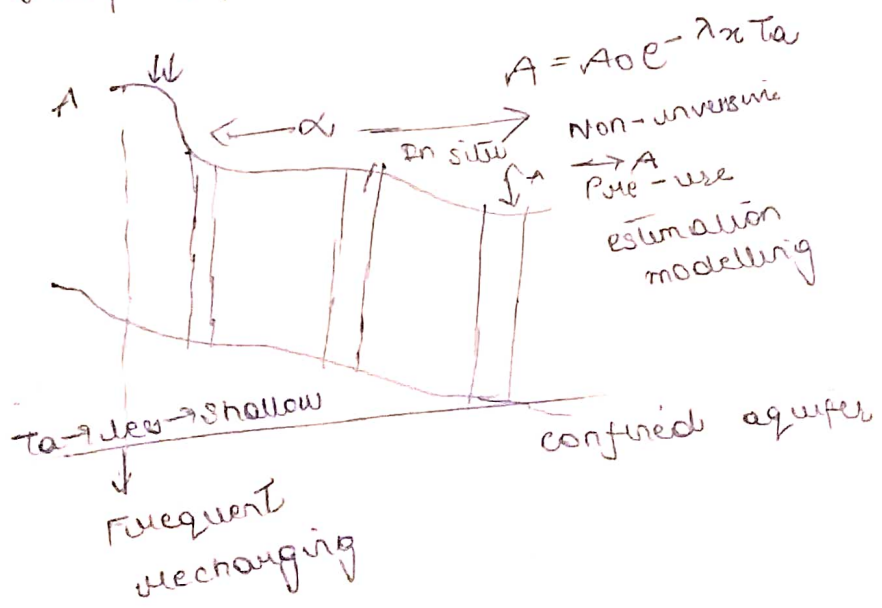 A
A = A₀e^-λxTa
α
In situ
A
Non-unversive
→ A
Pre-use
estimation
modelling
Ta → less → shallow
confined aquifer
Frequent
recharging